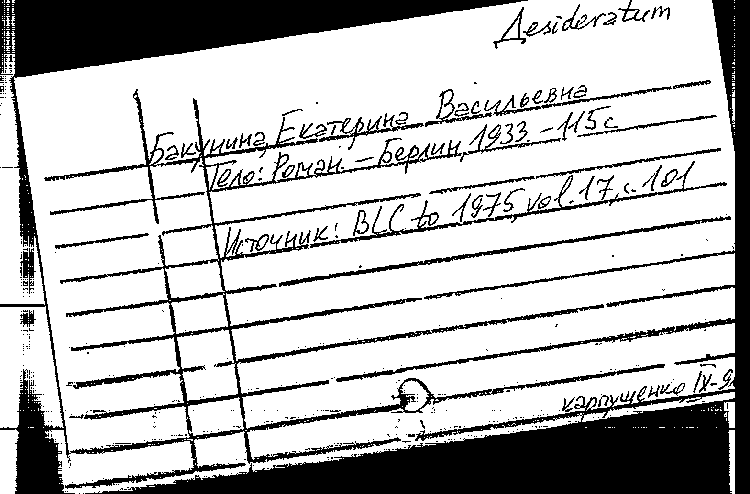 Desideratum
Бакунина, Екатерина Васильевна
Тело: Роман. - Берлин, 1933. - 115 с
Источник: BLC to 1975, vol. 17, с. 101
карпущенко IX-9